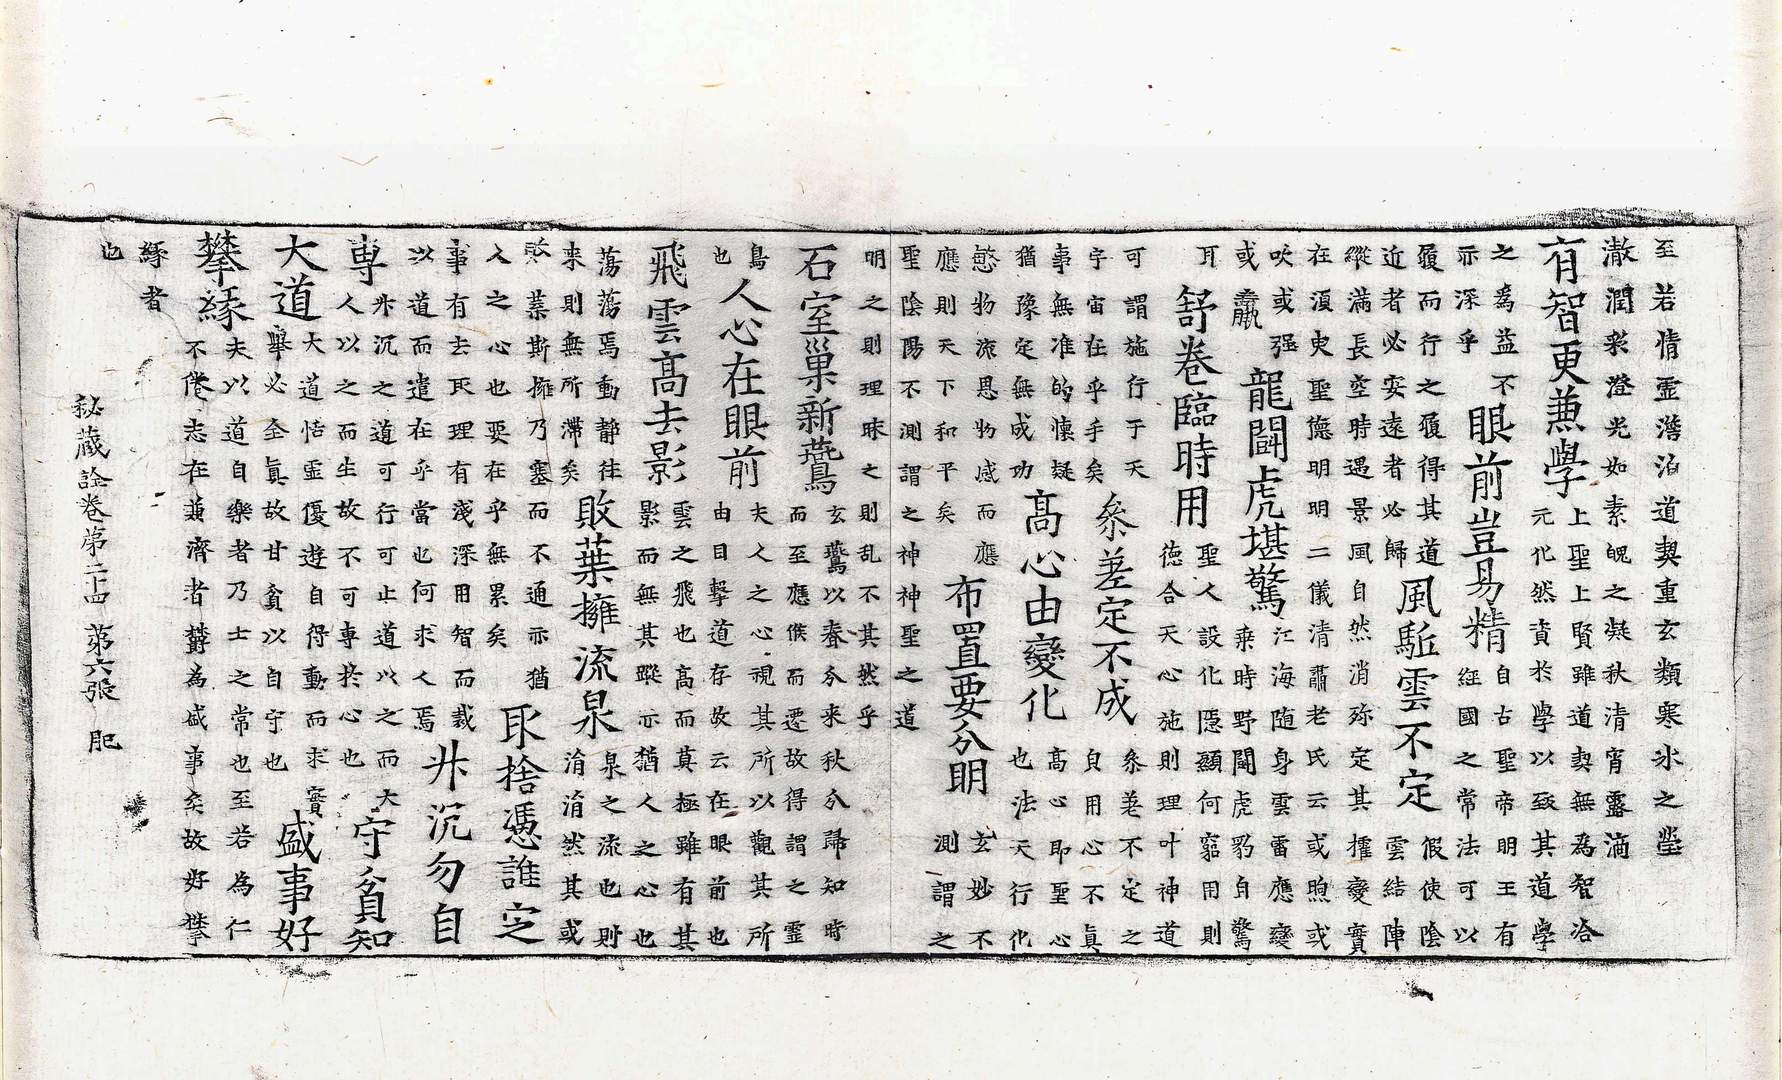 至若情霊澹泊道契重玄類寒氷之瑩
澈潤彩澄光如素魄之凝秋清宵露滴
有智更兼學
上聖上賢雖道契無為智洽
元化然資於學以致其道學
之為益不
示深乎
眼前豈易精
自古聖帝明王有
經國之常法可以
履而行之履得其道
近者必安遠者必歸
風駈雲不定
假使陰
雲結陣
縱滿長空時遇景風自然消殄定其摧變實
在須臾聖德明明二儀清肅老氏云或煦或
吹或强
或羸
龍鬪虎堪驚
江海随身雲雷應變
乗時野闊虎豹自驚
耳
舒卷臨時用
聖人設化隱顯何窮用則
德合天心施則理叶神道
可謂施行于天
宇宙在乎手矣
叅差定不成
叅差不定之
自用心不真
事無准的懐疑
猶豫定無成功
高心由變化
高心即聖心
也法天行化
慜物流恩物感而應
應則天下和平矣
布置要分明
玄妙不
測謂之
聖陰陽不測謂之神神聖之道
明之則理昧之則乱不其然乎
石室巢新鷰
玄鷰以春分来秋分歸知時
而至應候而遷故得謂之霊
鳥
也
人心在眼前
夫人之心視其所以觀其所
由目擊道存故云在眼前也
飛雲高去影
雲之飛也高而莫極雖有其
影而無其蹤亦猶人之心也
蕩蕩焉動静往
来則無所滞矣
敗葉擁流泉
泉之流也則
涓涓然其或
敗葉斯擁乃塞而不通亦猶
人之心也要在乎無累矣
取捨憑誰定
事有去取理有淺深用智而裁
以道而遣在乎當也何求人焉
升沉勿自
専
升沉之道可行可止道以之而大
人以之而生故不可専於心也
守貧知
大道
大道恬霊優遊自得動而求實
舉必全真故甘貧以自守也
盛事好
攀緣
夫以道自樂者乃士之常也至若為仁
不倦志在兼濟者欝為盛事矣故好攀
緣者
也
秘蔵詮卷第二十四 第六張 肥